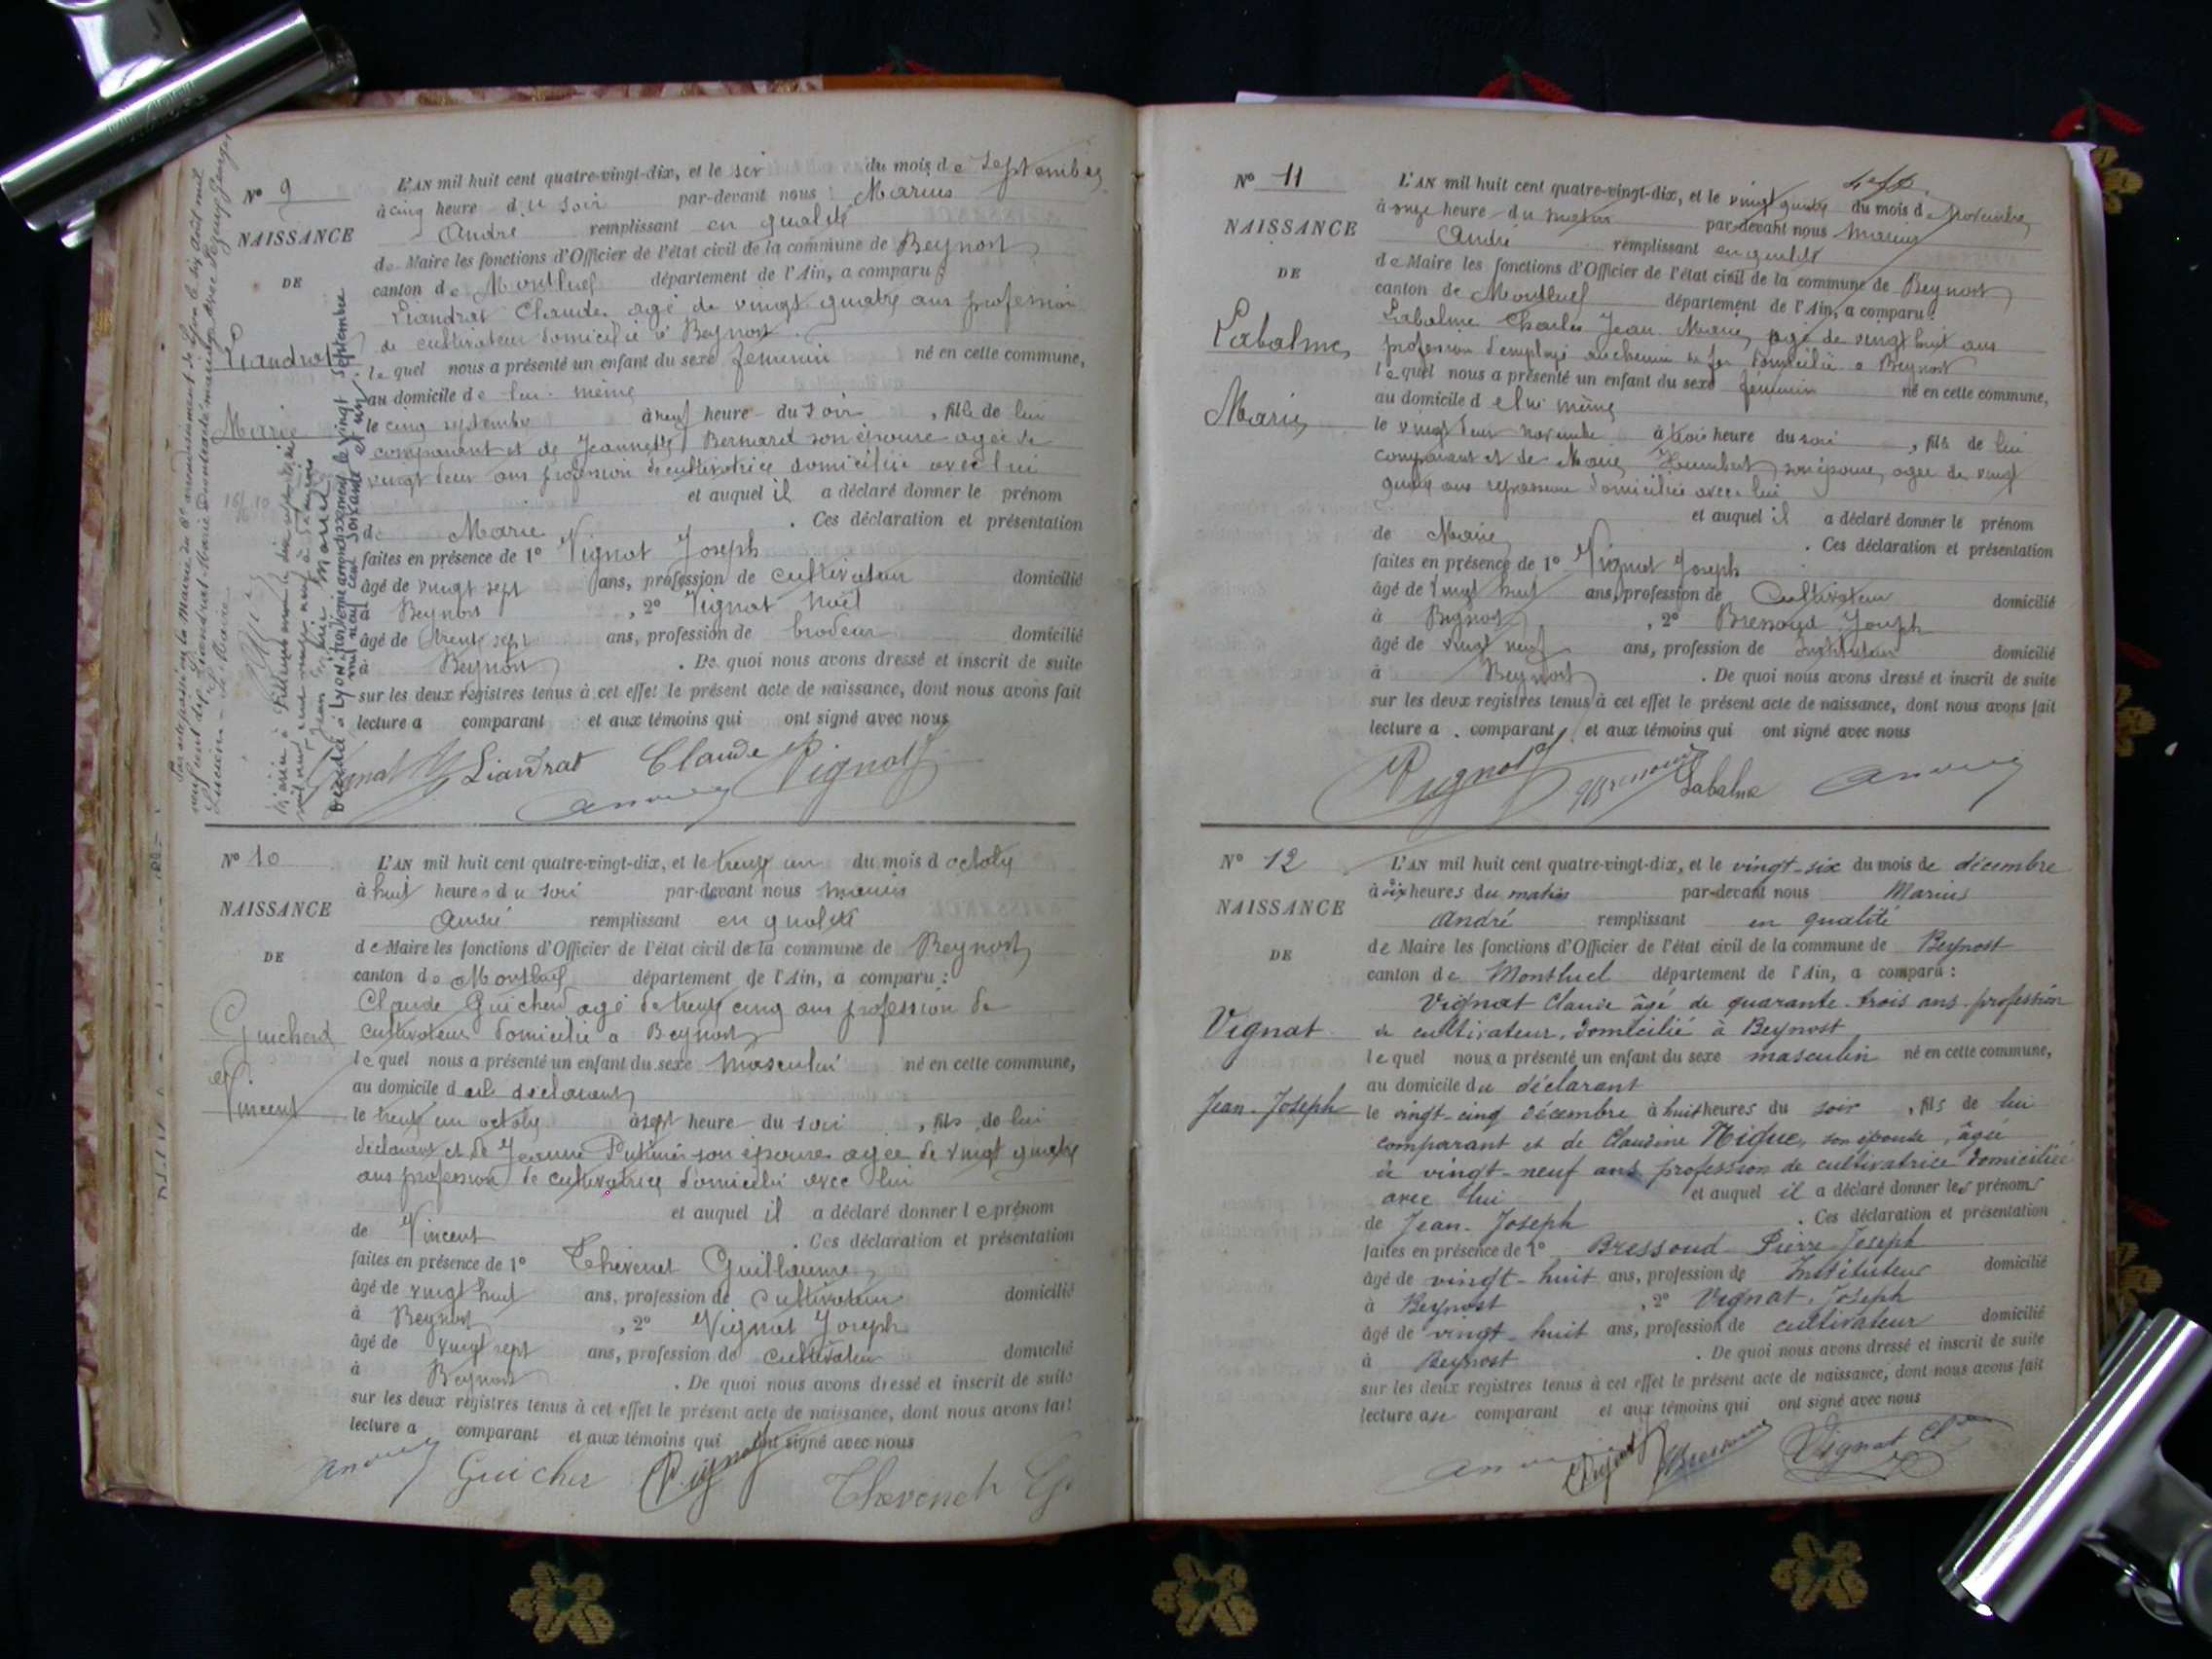 N° 9
NAISSANCE
DE
Liandrat
Marie
L'AN mil huit cent quatre-vingt-dix, et le six du mois de Septembre
à cinq heure du soir par-devant nous Marius
André remplissant en qualité
de Maire les fonctions d'Officier de l'état civil de la commune de Beynost
canton de Montluel département de l'Ain, a comparu :
Liandrat Claude agé de vingt quatre ans profession
de cultivateur domicilié à Beynost
lequel nous a présenté un enfant du sexe féminin né en cette commune,
au domicile de lui-même
le cinq septembre à neuf heure du soir , fille de lui
comparant et de Jeannette Bernard son épouse agée de
vingt deux ans profession de cultivatrice domiciliée avec lui
et auquel il a déclaré donner le prénom
de Marie . Ces déclaration et présentation
faites en présence de 1° Vignat Joseph
âgé de vingt sept ans, profession de cultivateur domicilié
à Beynost , 2° Vignat Noël
âgé de trente sept ans, profession de brodeur domicilié
à Beynost . De quoi nous avons dressé et inscrit de suite
sur les deux registres tenus à cet effet le présent acte de naissance, dont nous avons fait
lecture a comparant et aux témoins qui ont signé avec nous
Liandrat Claude Vignat
N° 10
NAISSANCE
DE
Guicherd
Vincent
L'AN mil huit cent quatre-vingt-dix, et le trente un du mois d octobre
à huit heures du soir par-devant nous Marius
André remplissant en qualité
de Maire les fonctions d'Officier de l'état civil de la commune de Beynost
canton de Montluel département de l'Ain, a comparu :
Claude Guicherd agé de trente cinq ans profession de
cultivateur domicilié a Beynost
lequel nous a présenté un enfant du sexe masculin né en cette commune,
au domicile du déclarant
le trente un octobre à sept heure du soir , fils de lui
déclarant et de Jeanne son épouse agée de vingt quatre
ans profession de cultivatrice domicilié avec lui
et auquel il a déclaré donner le prénom
de Vincent . Ces déclaration et présentation
faites en présence de 1° Thevenet Guillaume
âgé de vingt huit ans, profession de cultivateur domicilié
à Beynost , 2° Vignat Joseph
âgé de vingt sept ans, profession de cultivateur domicilié
à Beynost . De quoi nous avons dressé et inscrit de suite
sur les deux registres tenus à cet effet le présent acte de naissance, dont nous avons fait
lecture a comparant et aux témoins qui ont signé avec nous
Guicher Vignat Thevenet G.
N° 11
NAISSANCE
DE
Labalme
Marie
L'AN mil huit cent quatre-vingt-dix, et le vingt quatre du mois de Novembre
à onze heure du matin par-devant nous Marius
André remplissant en qualité
de Maire les fonctions d'Officier de l'état civil de la commune de Beynost
canton de Montluel département de l'Ain, a comparu :
Labalme Charles Jean Marie, agé de vingt huit ans
profession d'employé au chemin de fer domicilié a Beynost
lequel nous a présenté un enfant du sexe féminin né en cette commune,
au domicile d e lui même
le vingt deux novembre à trois heure du soir , fils de lui
comparant et de Marie Humbert, son épouse, agée de vingt
quatre ans domiciliée avec lui
et auquel il a déclaré donner le prénom
de Marie . Ces déclaration et présentation
faites en présence de 1° Vignat Joseph
âgé de vingt huit ans, profession de Cultivateur domicilié
à Beynost , 2° Bressoud Joseph
âgé de vingt neuf ans, profession de Instituteur domicilié
à Beynost . De quoi nous avons dressé et inscrit de suite
sur les deux registres tenus à cet effet le présent acte de naissance, dont nous avons fait
lecture a comparant et aux témoins qui ont signé avec nous
Vignat Labalme
N° 12
NAISSANCE
DE
Vignat
Jean-Joseph
L'AN mil huit cent quatre-vingt-dix, et le vingt-six du mois de décembre
à dix heures du matin par-devant nous Marius
André remplissant en qualité
de Maire les fonctions d'Officier de l'état civil de la commune de Beynost
canton de Montluel département de l'Ain, a comparu :
Vignat Claude âgé de quarante-trois ans profession
de cultivateur, domicilié à Beynost
lequel nous a présenté un enfant du sexe masculin né en cette commune,
au domicile du déclarant
le vingt-cinq décembre à huit heures du soir , fils de lui
comparant et de Claudine Migue, son épouse, âgée
de vingt-neuf ans profession de cultivatrice domiciliée
avec lui et auquel il a déclaré donner les prénoms
de Jean-Joseph . Ces déclaration et présentation
faites en présence de 1° Bressoud Pierre Joseph
âgé de vingt-huit ans, profession de Instituteur domicilié
à Beynost , 2° Vignat Joseph
âgé de vingt-huit ans, profession de cultivateur domicilié
à Beynost . De quoi nous avons dressé et inscrit de suite
sur les deux registres tenus à cet effet le présent acte de naissance, dont nous avons fait
lecture au comparant et aux témoins qui ont signé avec nous
Vignat Bressoud Vignat Cl